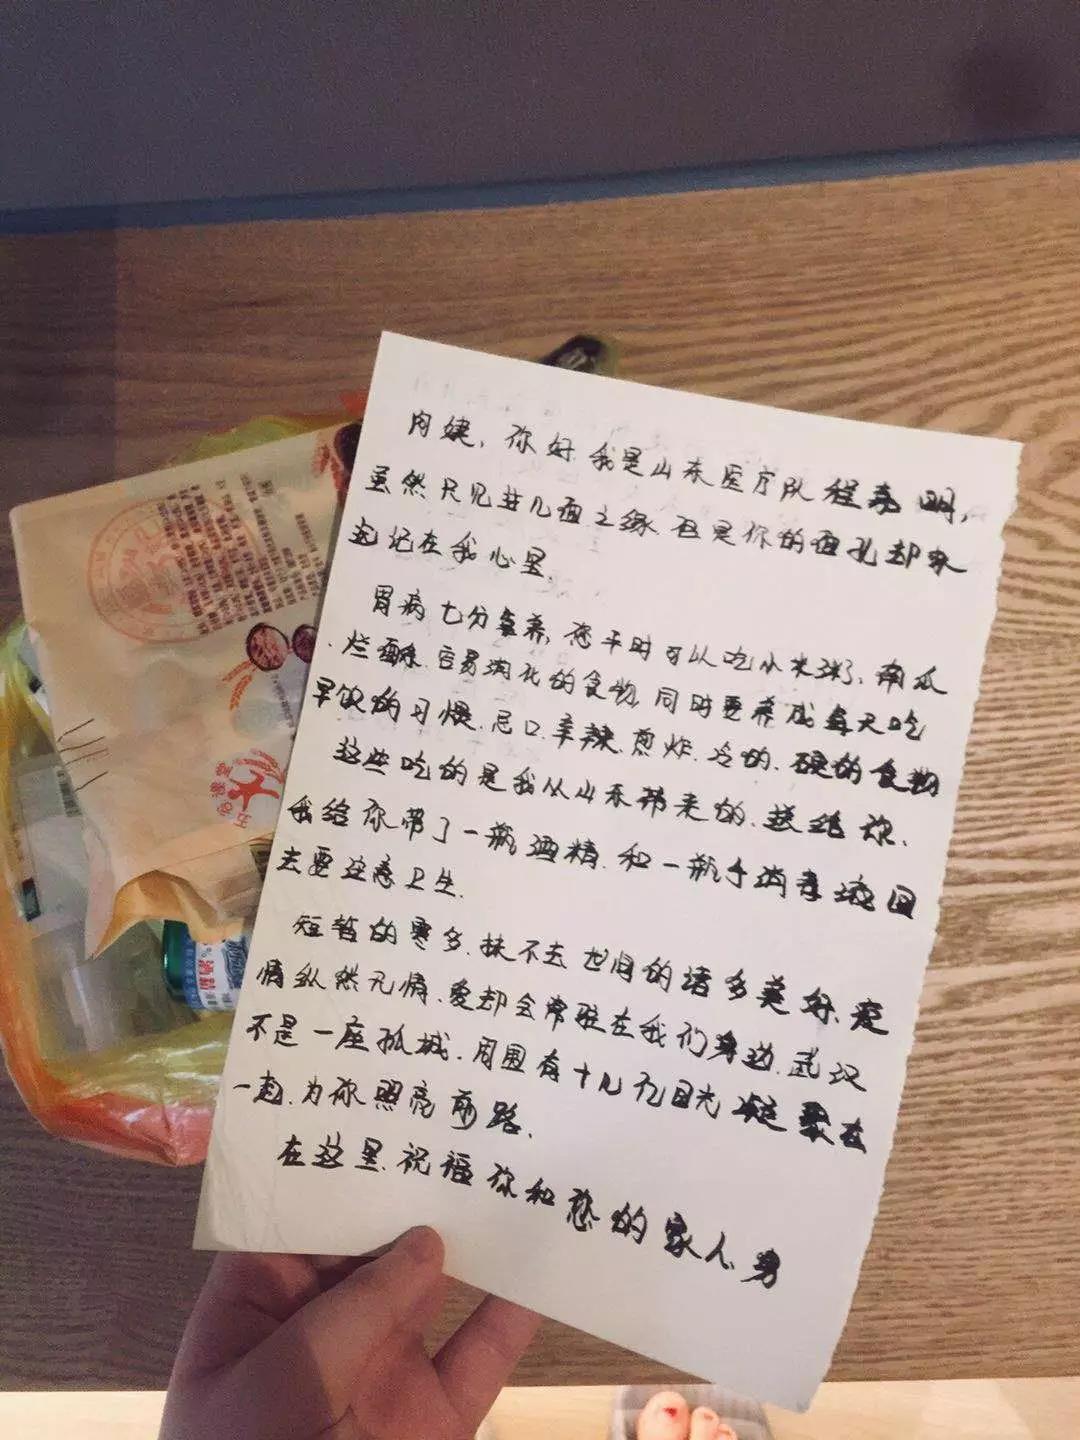 你好.我是山东医疗队程
虽然只见
在我心里.
胃病七分靠养,您平时可以吃小米粥、南瓜
、烂面条.容易消化的食物,同时要养成每天吃
早饭的习惯.忌口.辛辣.煎炸.冷的.硬的食物
这些吃的是我从山东带来的.送给你.
我给你带了一瓶酒精.和一瓶手消毒液回
去要注意卫生.
短暂的寒冬.抹不去世间的诸多美好.疫
情纵然无情.爱却会常驻在我们身边.武汉
不是一座孤城.周围有十几亿目光凝聚在
一起.为你照亮前路.
在这里.祝福你和您的家人.身
五谷课堂
酒精